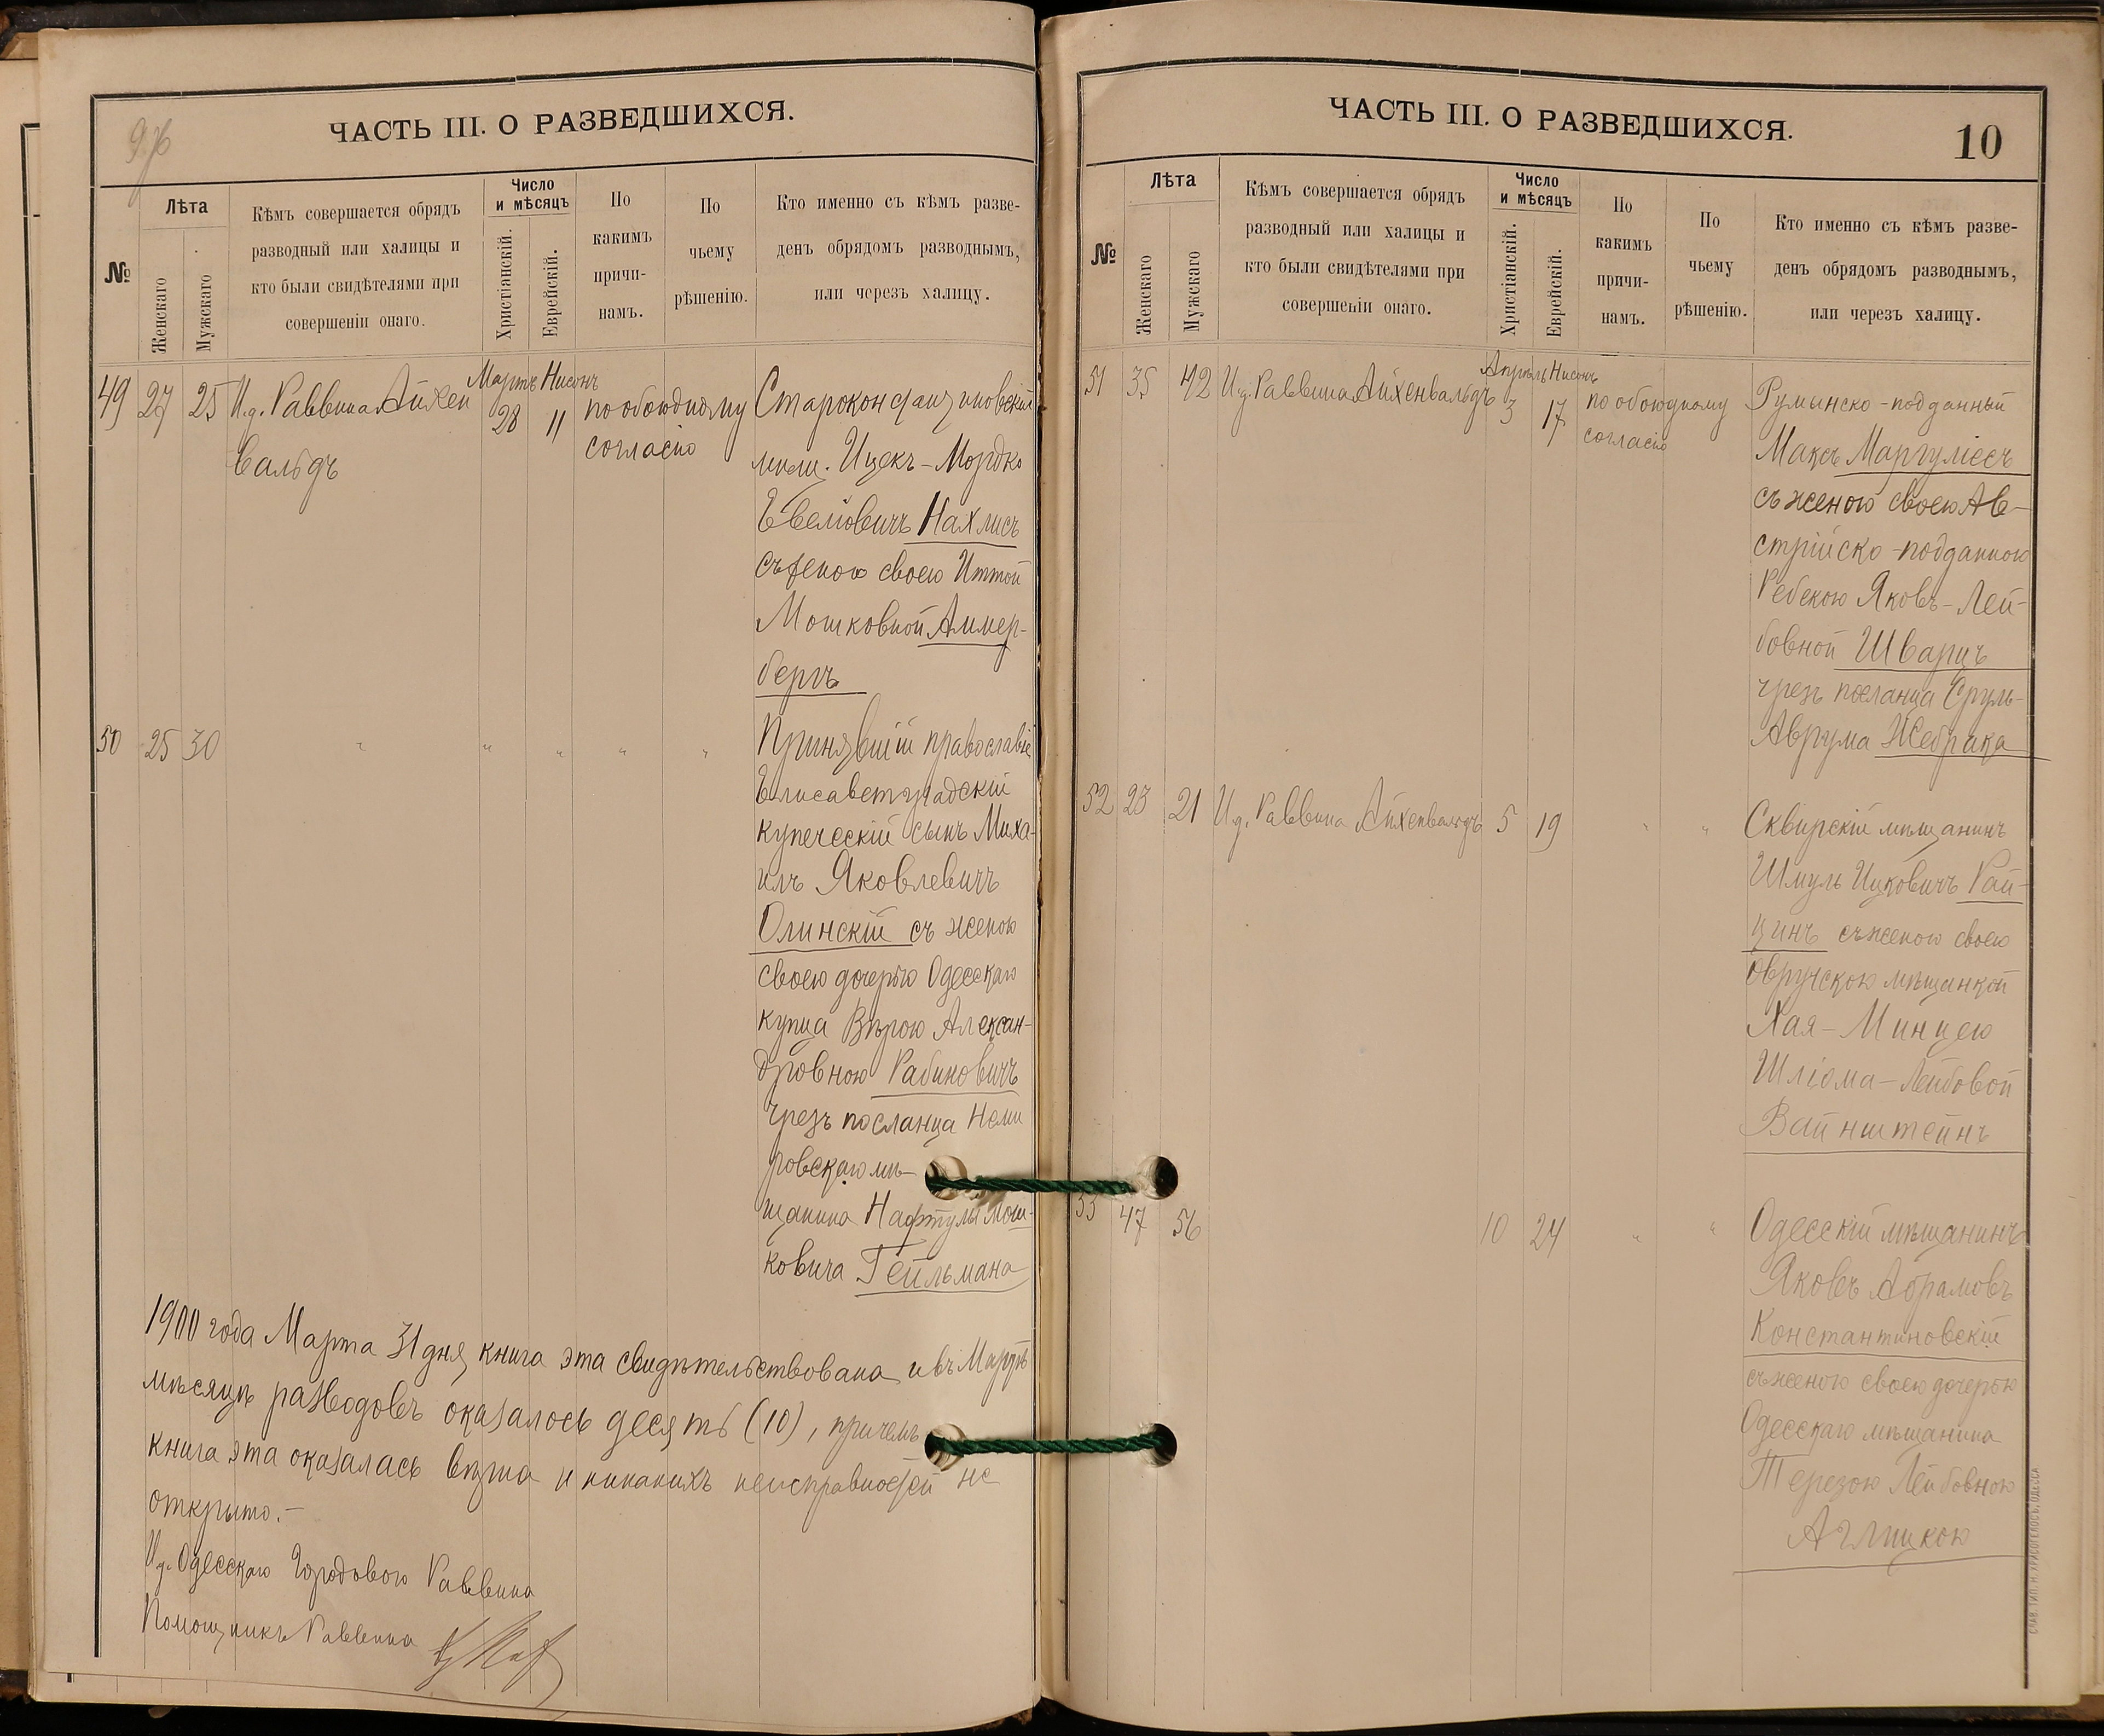 ЧАСТЬ III. О РАЗВЕДШИХСЯ.
№
Лѣта
Женскаго
Мужскаго
Кѣмъ совершается обрядъ
разводный или халицы и
кто были свидѣтелями при
совершеніи онаго.
Число
и мѣсяцъ
Христіанскій.
Еврейскій.
По
какимъ
причи-
намъ.
По
чьему
рѣшенію.
Кто именно съ кѣмъ разве-
денъ обрядомъ разводнымъ,
или через халицу.
49 27 25 И.д. Раввина Айхен
вальдъ
Мартъ Нисонъ
28 11
по обоюдному
согласію
Староконстантиновскій
мѣщ. Ицекъ-Мордко
Евеліовичъ Нахлисъ
съ женою своею Иттой
Мошковной Аммер-
бергъ
50 25 30 " " " " "
Принявшій православіе
Елисаветградскій
купеческій сынъ Миха-
илъ Яковлевичъ
Олинскій съ женою
своею дочерью Одесскаго
купца Вѣрою Алексан-
дровною Рабиновичъ
чрезъ посланца Неми
ровскаго мѣ-
щанина Нафтулы Мош-
ковича Гейльмана
1900 года Марта 31 дня книга эта свидѣтельствована и въ Мартѣ
мѣсяцѣ разводовъ оказалось десять (10), причемъ
книга эта оказалась вѣрна и никакихъ неисправностей не
открыто.-
И.д. Одесскаго Городового Раввина
Помощникъ Раввина
ЧАСТЬ III. О РАЗВЕДШИХСЯ.
10
№
Лѣта
Женскаго
Мужскаго
Кѣмъ совершается обрядъ
разводный или халицы и
кто были свидѣтелями при
совершеніи онаго.
Число
и мѣсяцъ
Христіанскій.
Еврейскій.
По
какимъ
причи-
намъ.
По
чьему
рѣшенію.
Кто именно съ кѣмъ разве-
денъ обрядомъ разводнымъ,
или черезъ халицу.
51 35 42 И.д. Раввина Айхенвальдъ
Апрѣль Нисонъ
3 17
по обоюдному
согласію
Румынско-подданный
Максъ Маргуліесъ
съ женою своею Ав-
стрійско-подданною
Ребекою Яковъ-Лей-
бовной Шварцъ
чрезъ посланца Сруль-
Аврума Жебрака
52 23 21 И.д. Раввина Айхенвальдъ 5 19 " "
Сквирскій мѣщанинъ
Шмуль Ицковичъ Рай-
цинъ съ женою своею
Овручскою мѣщанкой
Хая-Минцею
Шліома-Лейбовой
Вайнштейнъ
53 47 56 10 24 " "
Одесскій мѣщанинъ
Яковъ Абрамовъ
Константиновскій
съ женою своею дочерью
Одесскаго мѣщанина
Терезою Лейбовною
СЛАВ. ТИП. Н. ХРИСОГЕЛОСЪ, ОДЕССА